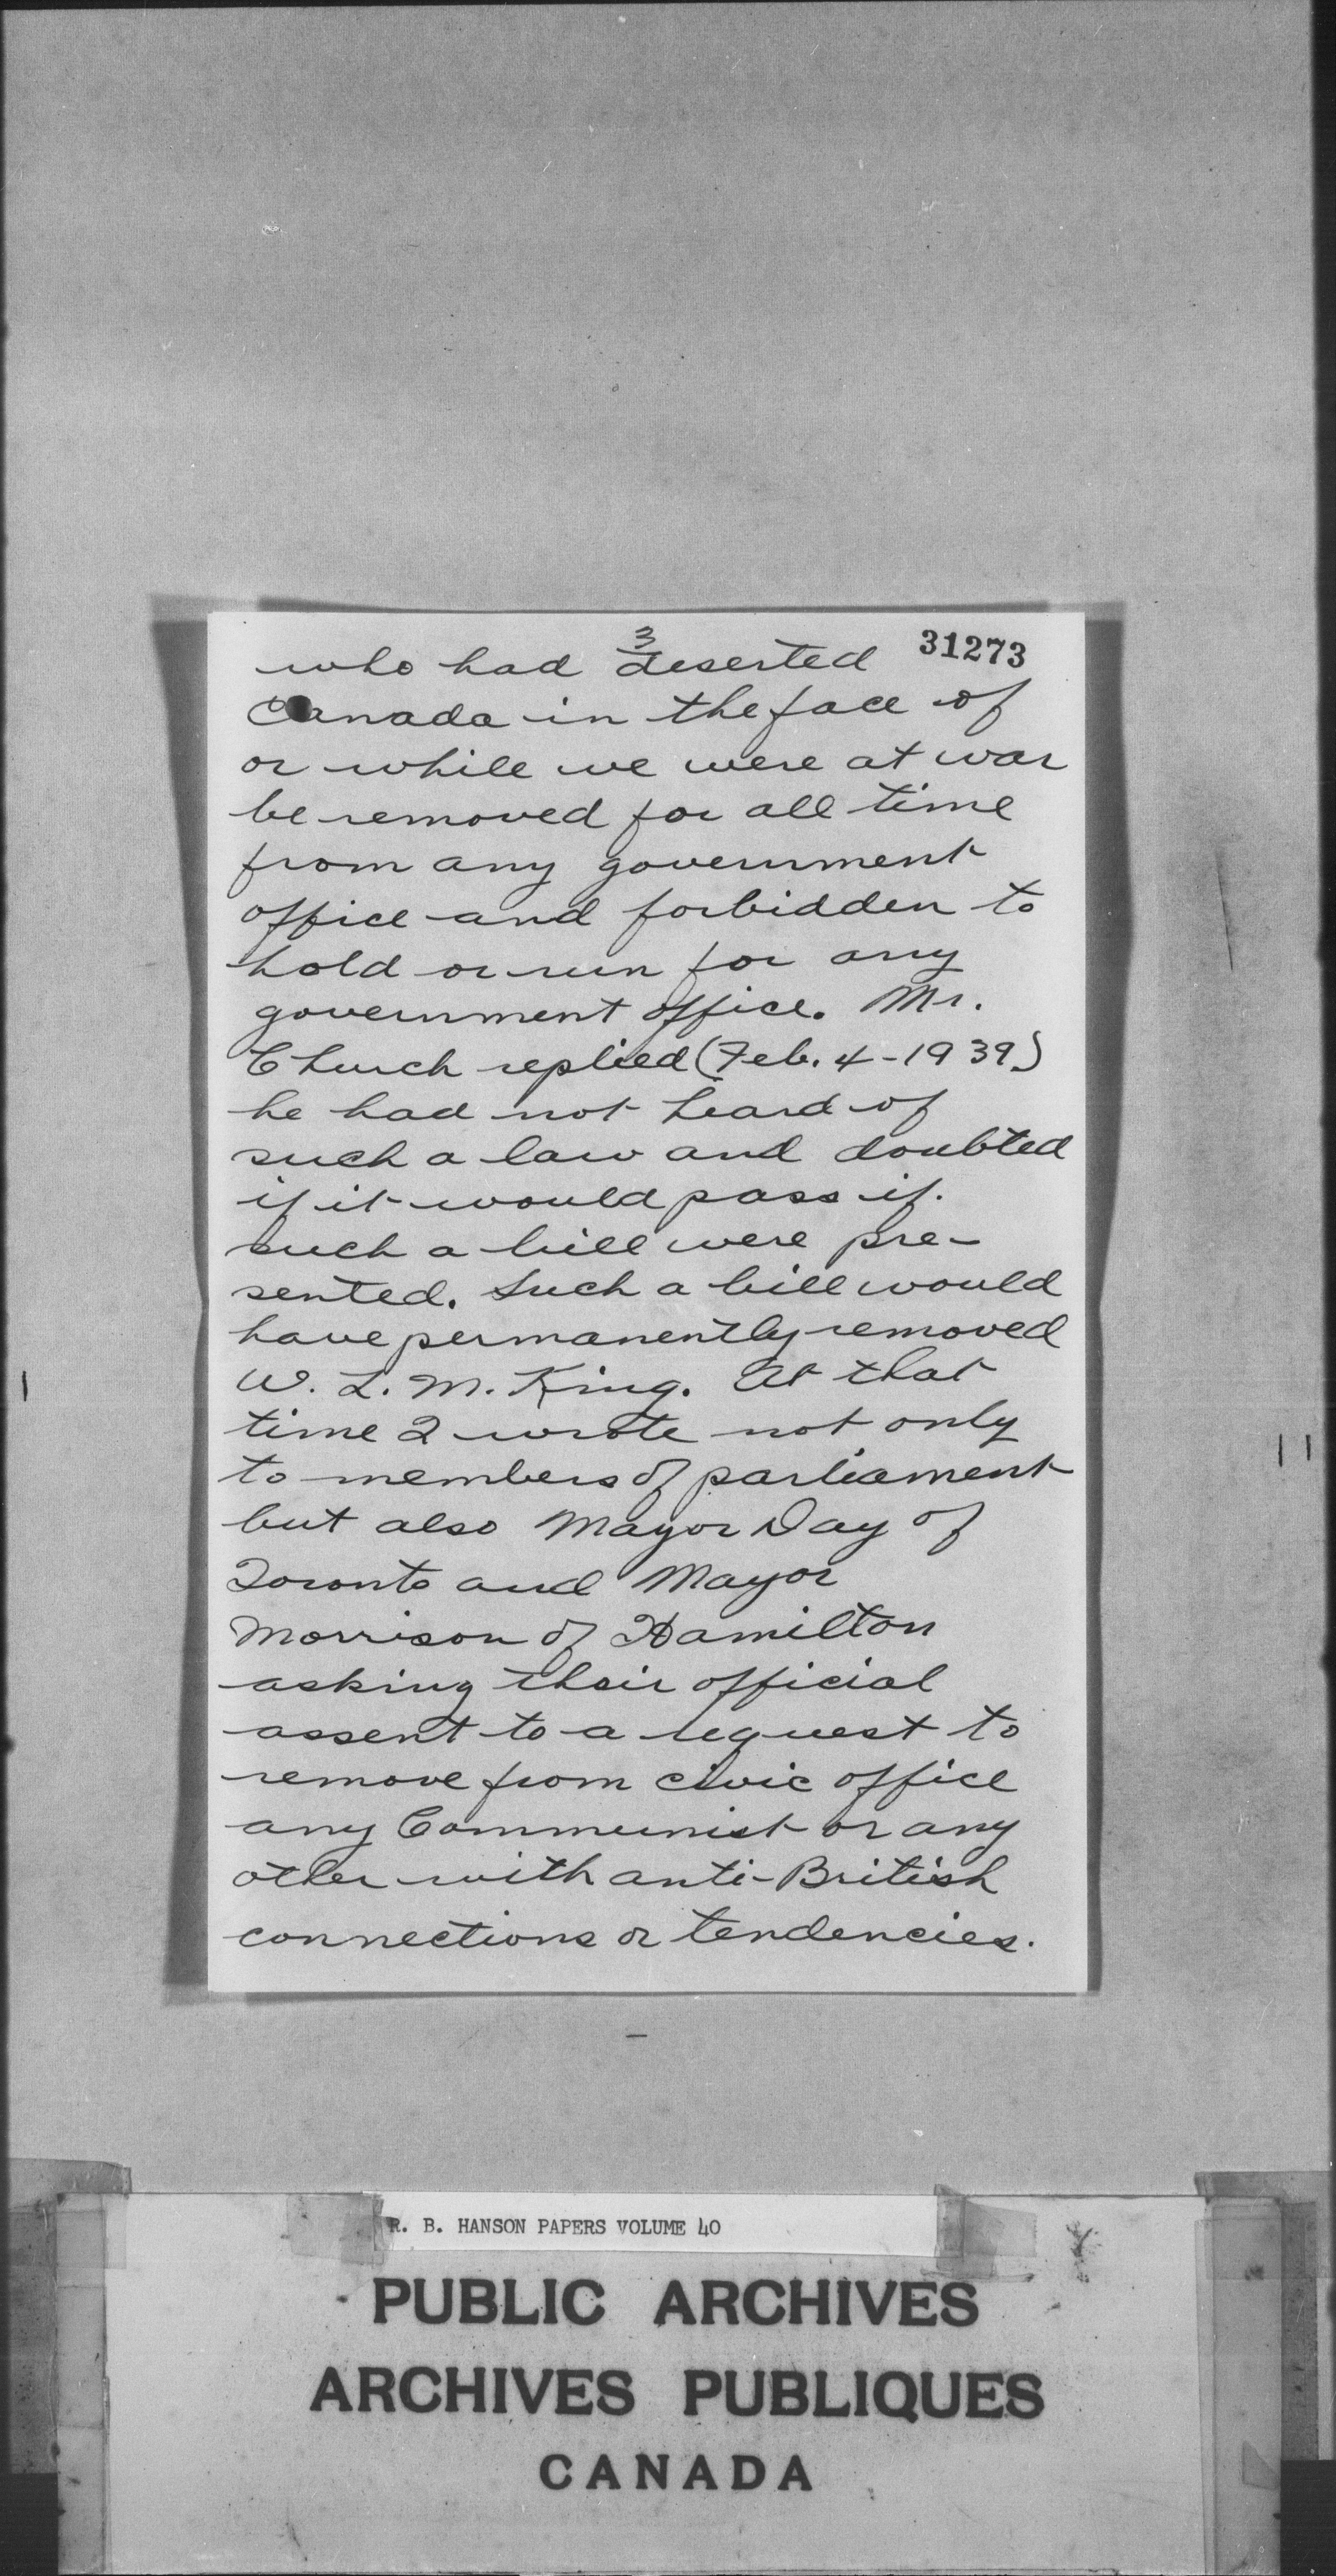 3
31273
who had deserted
Canada in the face of
or while we were at war
be removed for all time
from any government
office and forbidden to
hold or run for any
government office. Mr.
Church replied (Feb. 4-1939)
he had not heard of
such a law and doubted
if it would pass if
such a bill were pre-
sented. Such a bill would
have permanently removed
W. L. M. King. At that
time I wrote not only
to members of parliament
but also Mayor Day of
Toronto and Mayor
Morrison of Hamilton
asking their official
assent to a request to
remove from civic office
any Communist or any
other with anti-British
connections or tendencies.
R. B. HANSON PAPERS VOLUME 40
PUBLIC ARCHIVES
ARCHIVES PUBLIQUES
CANADA